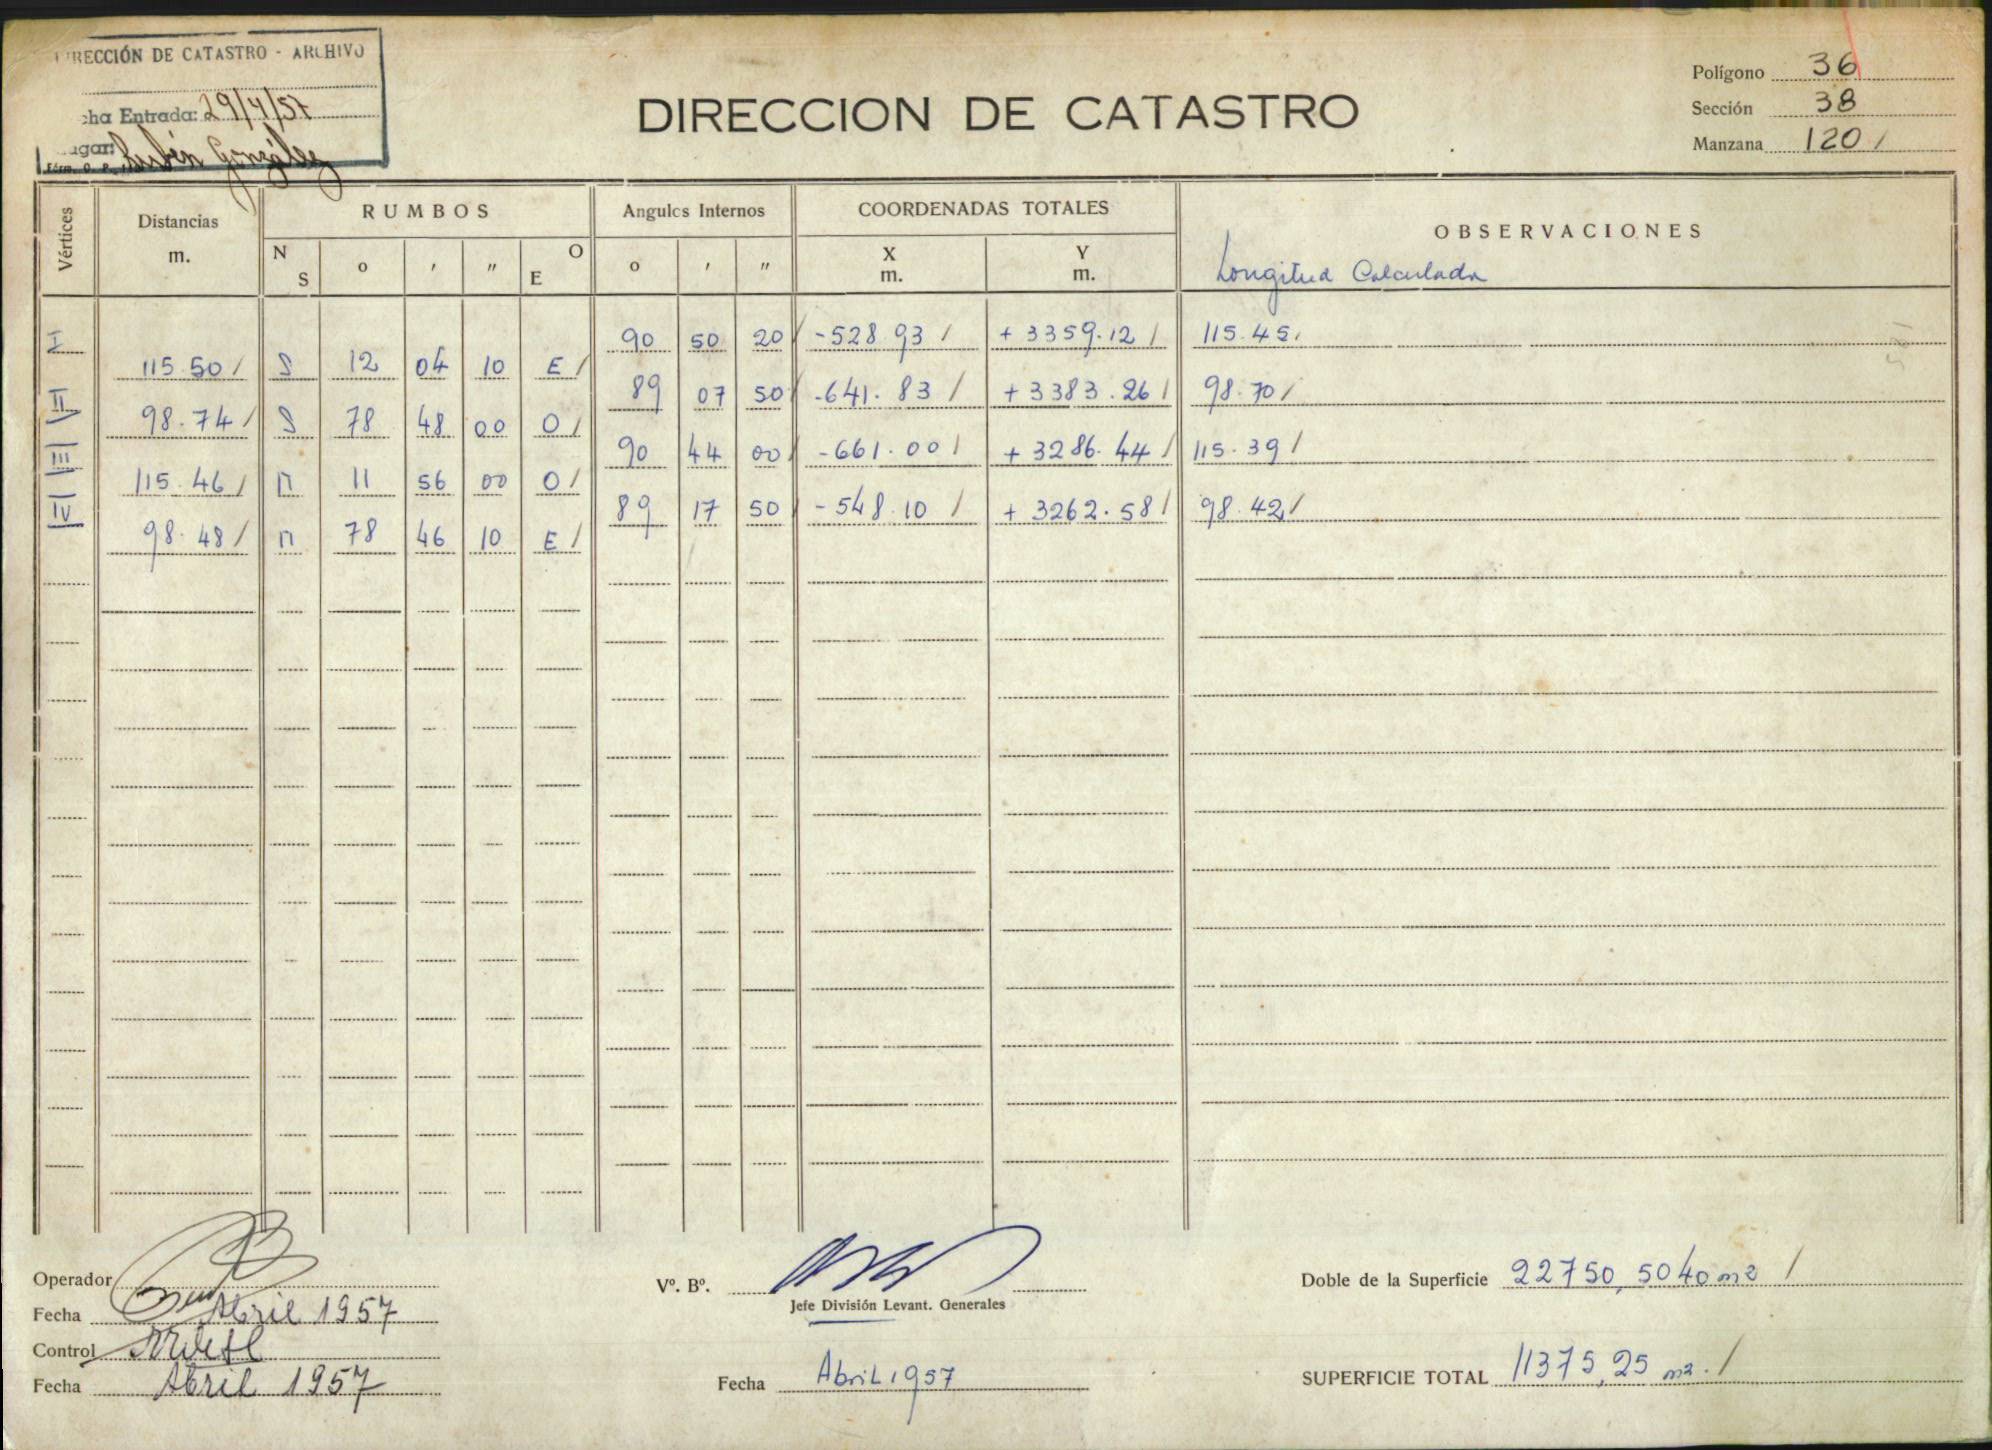 DIRECCIÓN DE CATASTRO - ARCHIVO
cha Entrada: 29/4/57
ugar: Rubén González
Form. O. P.
DIRECCION DE CATASTRO
Polígono 36
Sección 38
Manzana 120 /
Vértices Distancias m. RUMBOS N S o ′ ″ O E Angulos Internos o ′ ″ COORDENADAS TOTALES X m. Y m. OBSERVACIONES
Longitud Calculada
I 90 50 20 / -528.93 / +3359.12 / 115.45 /
115.50 / S 12 04 10 E /
II 89 07 50 / -641.83 / +3383.26 / 98.70 /
98.74 / S 78 48 00 O /
III 90 44 00 / -661.00 / +3286.44 / 115.39 /
115.46 / N 11 56 00 O /
IV 89 17 50 / -548.10 / +3262.58 / 98.42 /
98.48 / N 78 46 10 E /
Operador
Fecha Abril 1957
Control
Fecha Abril 1957
Vº. Bº.
Jefe División Levant. Generales
Fecha Abril 1957
Doble de la Superficie 22750,5040 m2 /
SUPERFICIE TOTAL 11375,25 m2. /